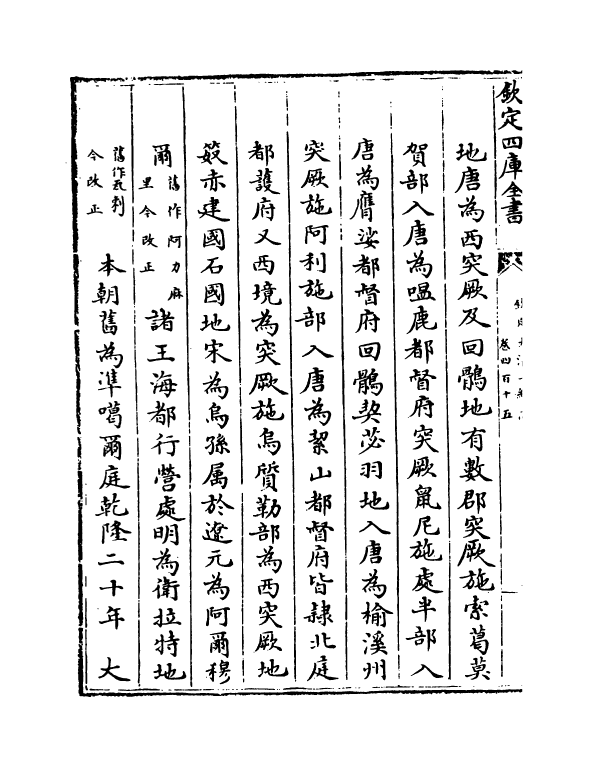 欽定四庫全書
卷四百十五
地唐為西突厥及回鶻地有數郡突厥施索葛莫
賀部入唐為嗢鹿都督府突厥鼠尼施處半部入
唐為鷹娑都督府回鶻契苾羽地入唐為榆溪州
突厥施阿利施部入唐為絜山都督府皆隸北庭
都護府又西境為突厥施烏質勒部為西突厥地
笯赤建國石國地宋為烏孫属於遼元為阿爾穆
爾舊作阿力麻里今改正諸王海都行營處明為衛拉特地
舊作瓦剌今改正 本朝舊為準噶爾庭乾隆二十年 大